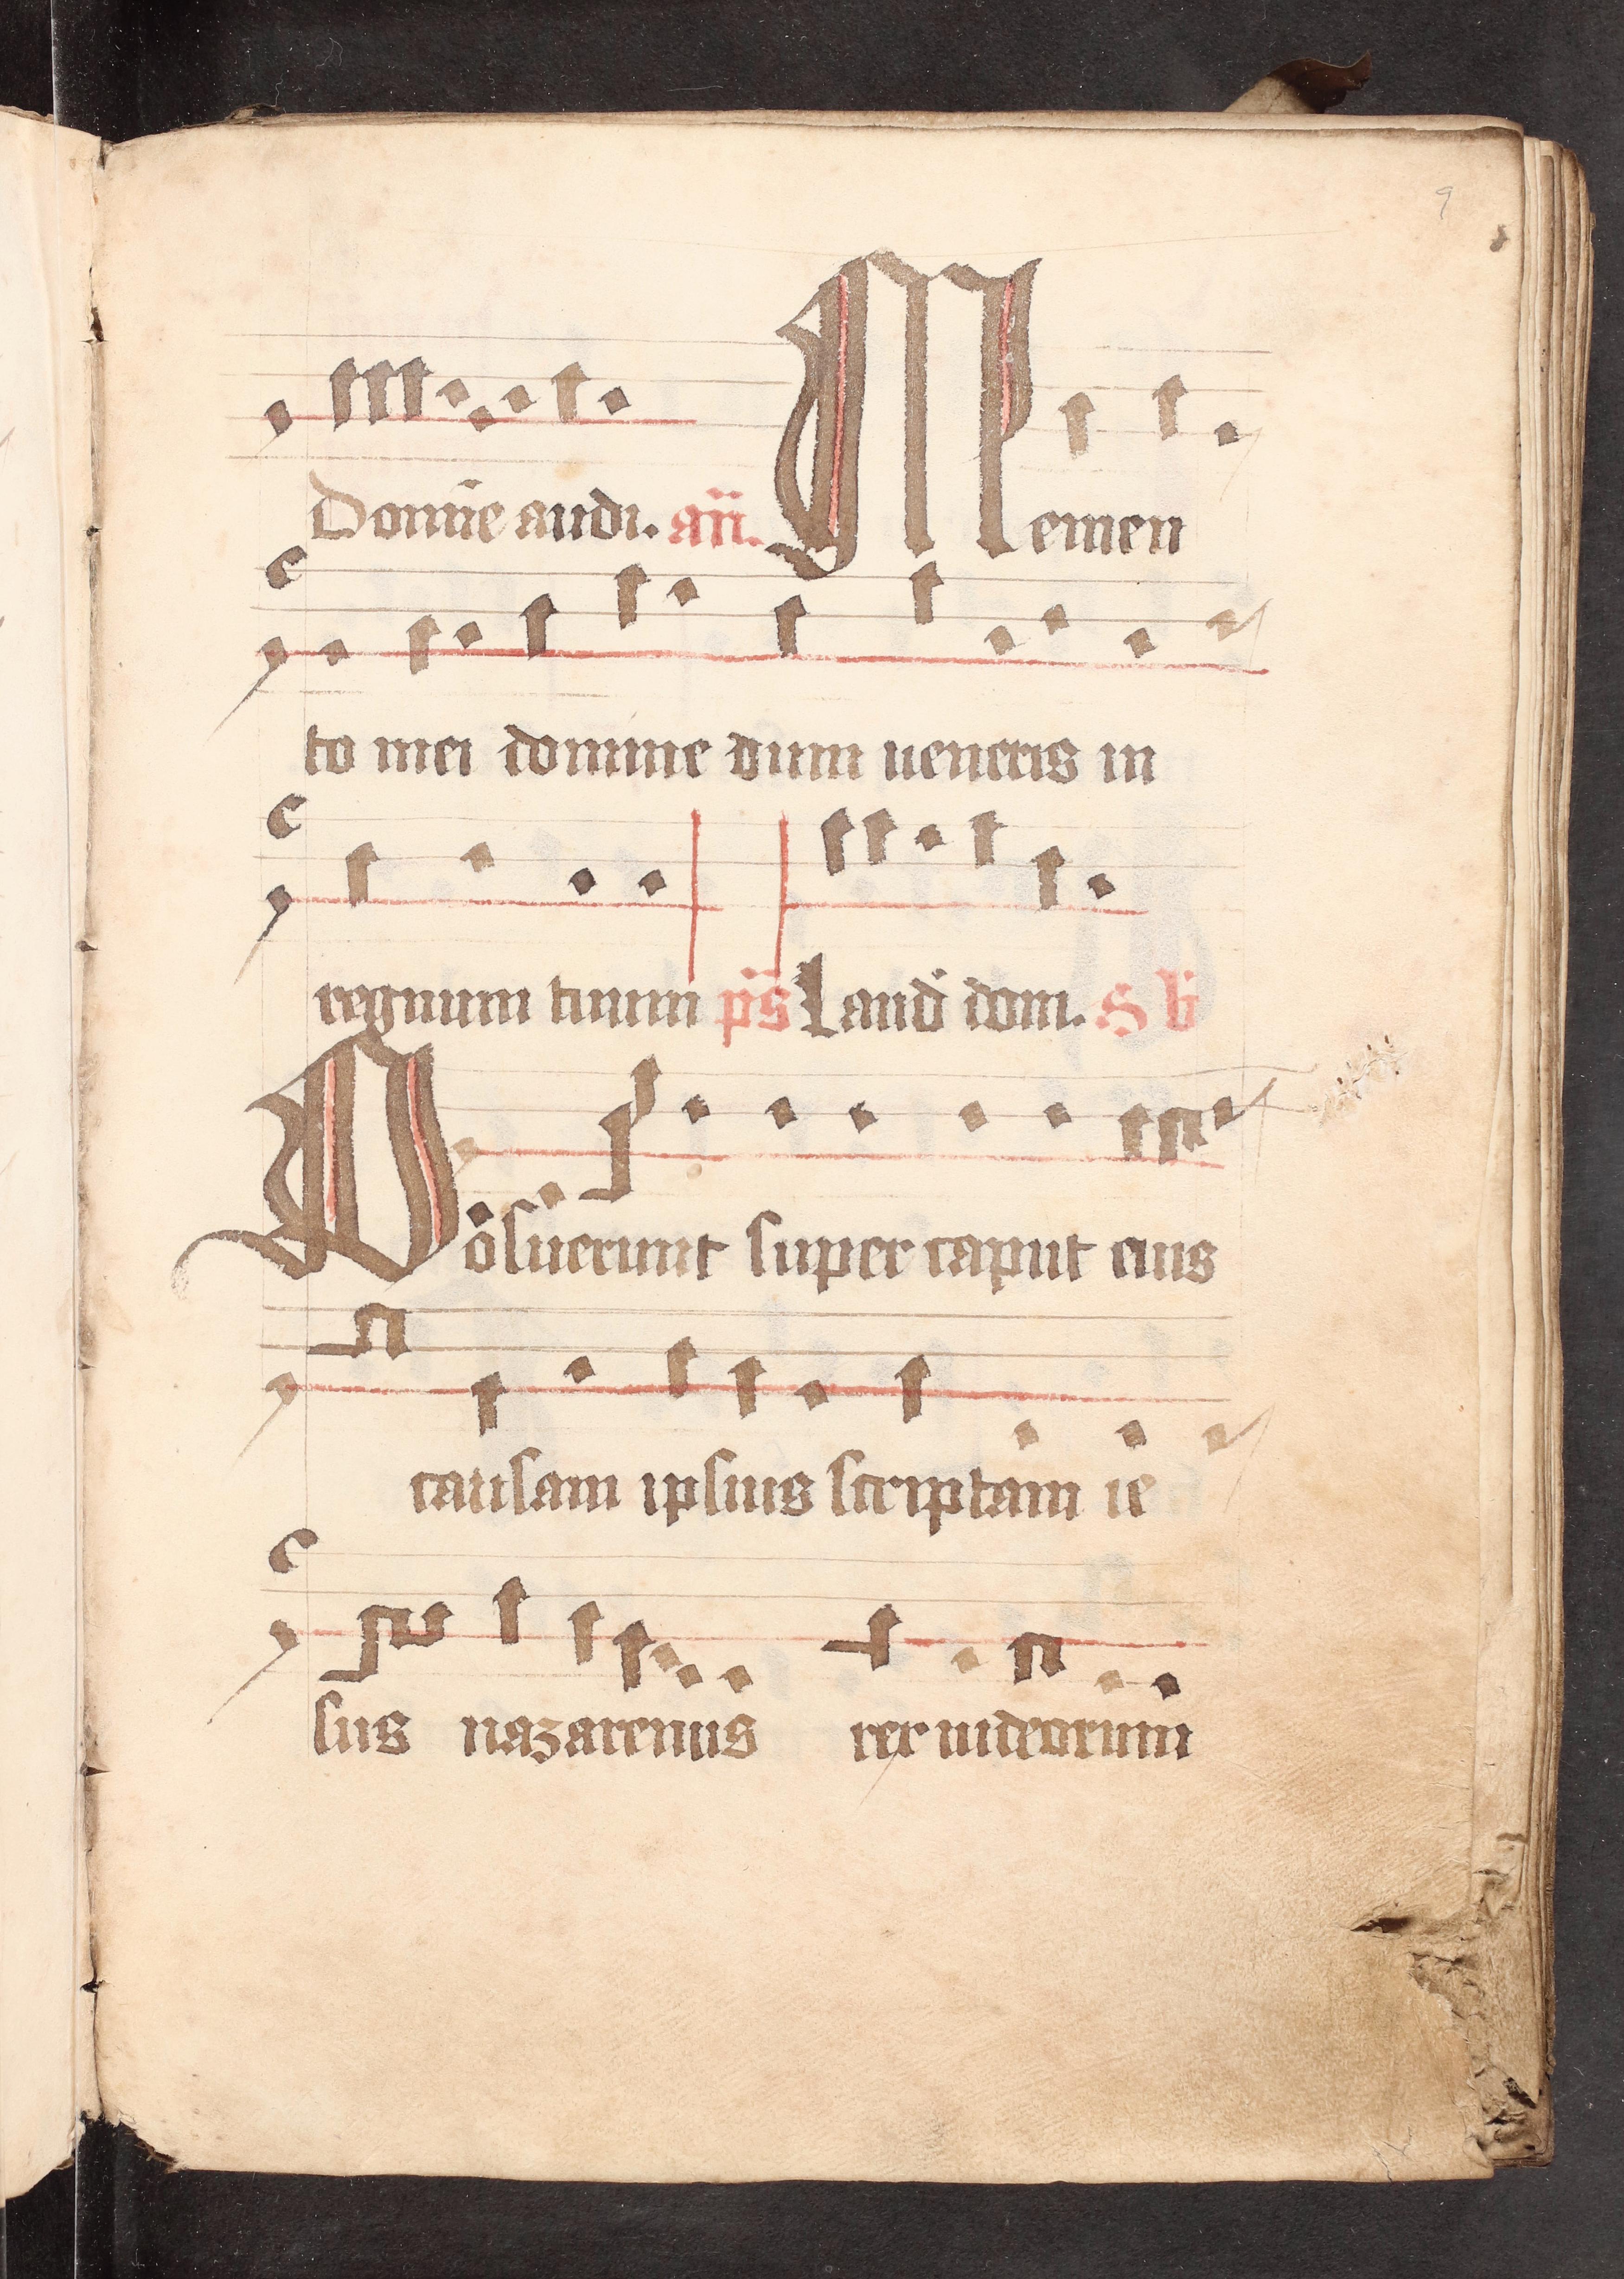 9
Domīe audi. añ. Memen
to mei domine dum ueneris in
regnum tuum ps̄ Laud dom. S b
Posuerunt super caput eius
causam ipsius scriptam ie
sus nazarenus rex iudeorum